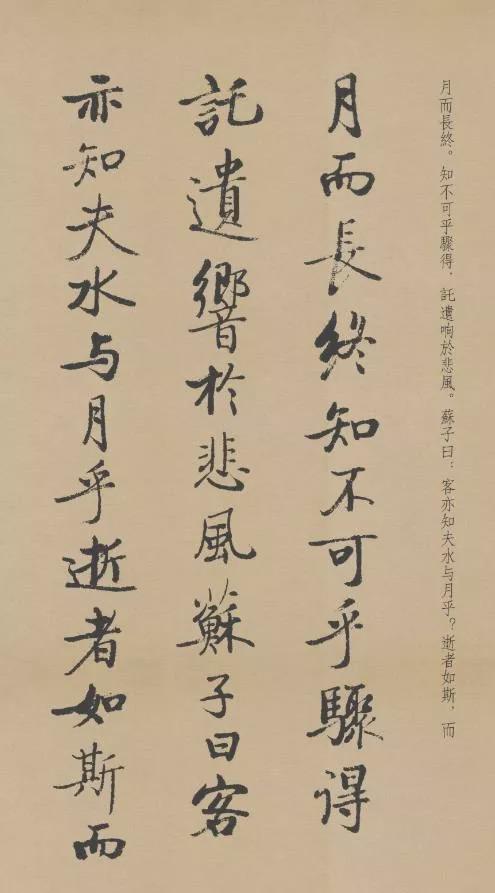 月而長終。知不可乎驟得，託遺响於悲風。蘇子曰：客亦知夫水与月乎？逝者如斯，而
月而長終知不可乎驟得
託遺響於悲風蘇子曰客
亦知夫水与月乎逝者如斯而